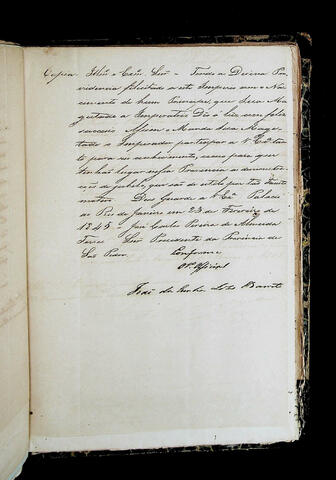 Copia. Illmo e Exmo Snr = Tendo a Divina Pro
videncia felicitado a este Imperio com o Nas
cimento de hum Principe, que Sua Ma
gestade a Imperatriz Deo á luz com feliz
successo: Assim o Manda Sua Mages
tade o Imperador participar a V. Exa tan
to para seu conhecimento, como para que
tenhão lugar nessa Provincia as demonstra
ções de jubilo, que são de estilo por tão fausto
motivo. Deos Guarde a V. Exa Palacio
do Rio de Janeiro em 23 de Fevereiro de
1845 = José Carlos Pereira de Almeida
Torres = Snr Presidente da Provincia de
São Pedro.
Conforme
O Official
João da Cunha Lobo Barreto